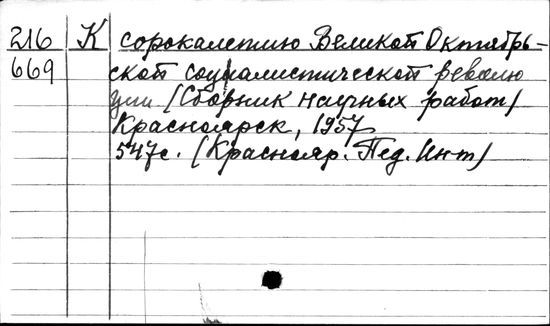 216 К сорокалетию Великой Октябрь-
669 ской социалистической револю
ции (Сборник научных работ)
Красноярск, 1957
547с. (Краснояр. Пед. Инт)